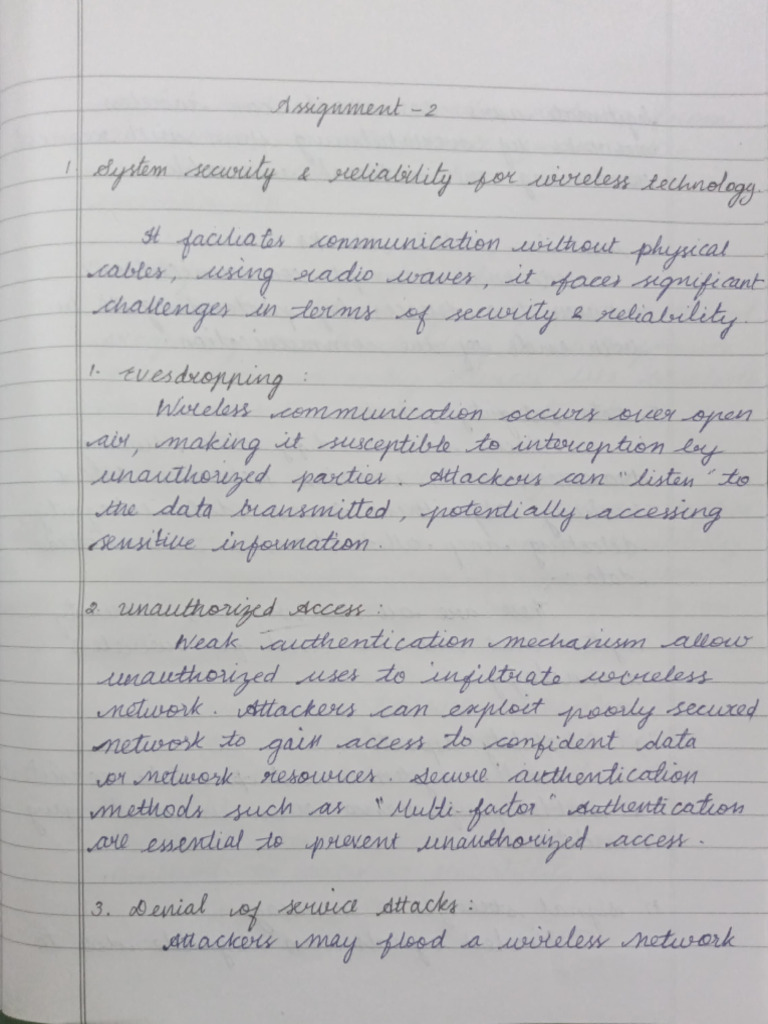 Assignment - 2
1 System security & reliability for wireless technology.
It faciliates communication without physical
cables, using radio waves, it faces significant
challenges in terms of security & reliability.
1. Evesdropping :
Wireless communication occurs over open
air, making it susceptible to interception by
unauthorized parties. Attackers can "listen" to
the data transmitted, potentially accessing
sensitive information.
2. Unauthorized Access :
Weak authentication mechanism allow
unauthorized uses to infiltrate wireless
network. Attackers can exploit poorly secured
network to gain access to confident data
or network resources. Secure authentication
methods such as "Multi-factor" Authentication
are essential to prevent unauthorized access.
3. Denial of service Attacks :
Attackers may flood a wireless network